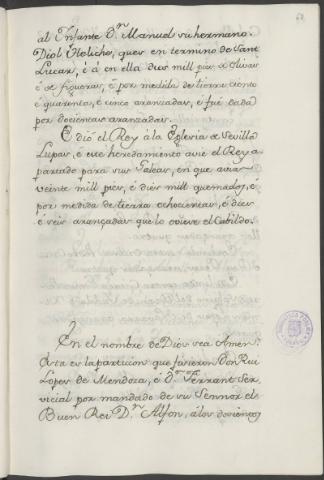 al Infante D.n Manuel su hermano.
Diol Heliche, que es en termino de Sant
Lucar, é á en ella dies mill pies de Olivar
é de figueras, é por medida de tierra ciento
é quarenta, é cinco aranzadas, é fué dada
por docientas aranzadas.
E dió el Rey à la Eglesia de Sevilla
Lupas, e este heredamiento avie el Rey a
partado para sus Galeas, en que avia
veinte mill pies, é dies mill quemados, é
por medida de tierra ochocientas, é dies
é seis arançadas que lo oviese el Cabildo.
En el nombre de Dios sea Amen:
Esta es la particion que ficieron Don Rui
Lopes de Mendoza, é D.n Ferrant Ser
vicial por mandado de su Sennor el
Buen Rei D.n Alfon, á los docientos